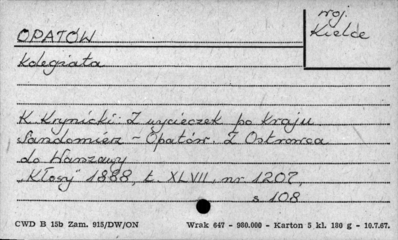 woj.
Kielce
OPATÓW
kolegiata
K. Krynicki: Z wycieczek po kraju
Sandomierz - Opatów. Z Ostrowca
do Warszawy
"Kłosy" 1888, t. XLVII, nr 1207,
s 108
CWD B 15b Zam. 915/DW/ON Wrak 647 - 980.000 - Karton 5 kl. 180 g - 10.7.67.